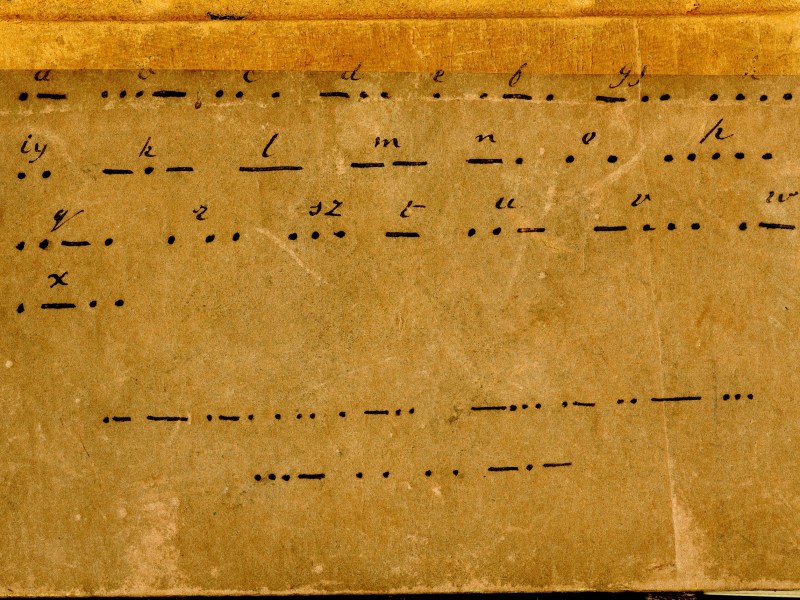 a b c d e f gj h
·– ···– ·· · –·· · ·–· –·· ····
iy k l m n o p
·· –·– — –– –· · · ·····
q r sz t u v w
··–· · ·· ··· – ··– –··· ·–
x
·–··
·– — ·–· · ·· · –·· –··· ·– ·· — ···
···– · · · · –·–